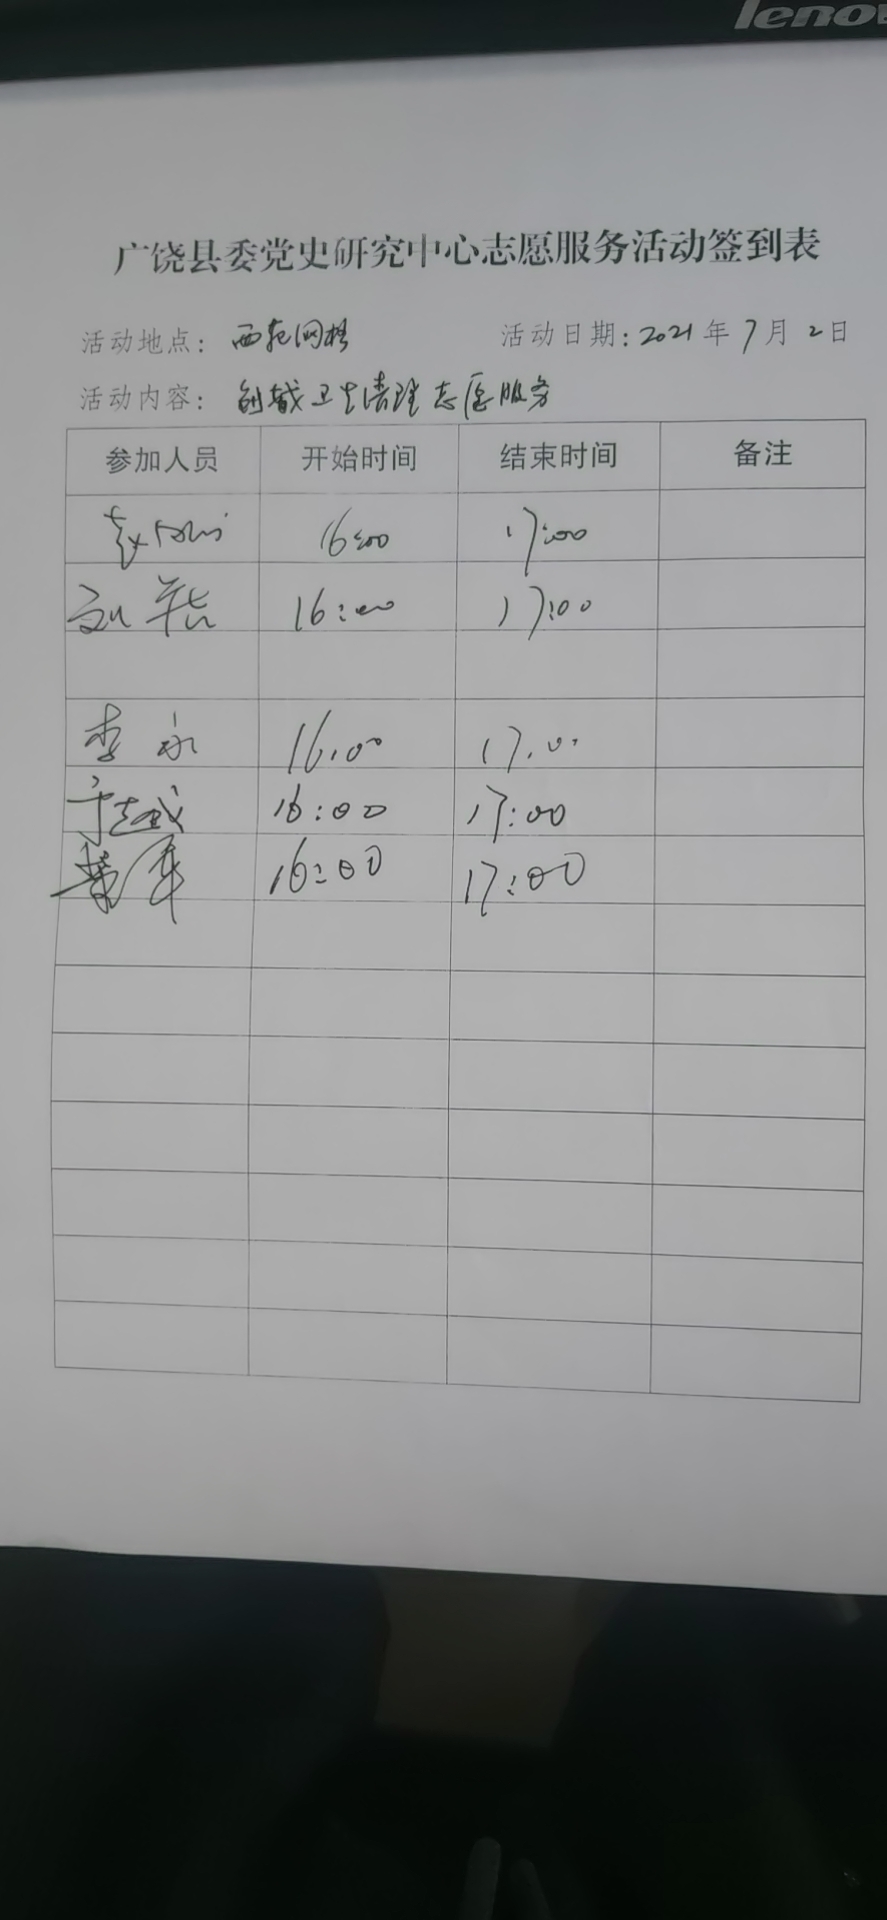 lenov
广饶县委党史研究中心志愿服务活动签到表
活动地点：西苑网格 活动日期：2021年7月2日
活动内容：创城卫生清理志愿服务
参加人员 开始时间 结束时间 备注
16:00 17:00
刘 16:00 17:00
李永 16:00 17:00
16:00 17:00
16:00 17:00